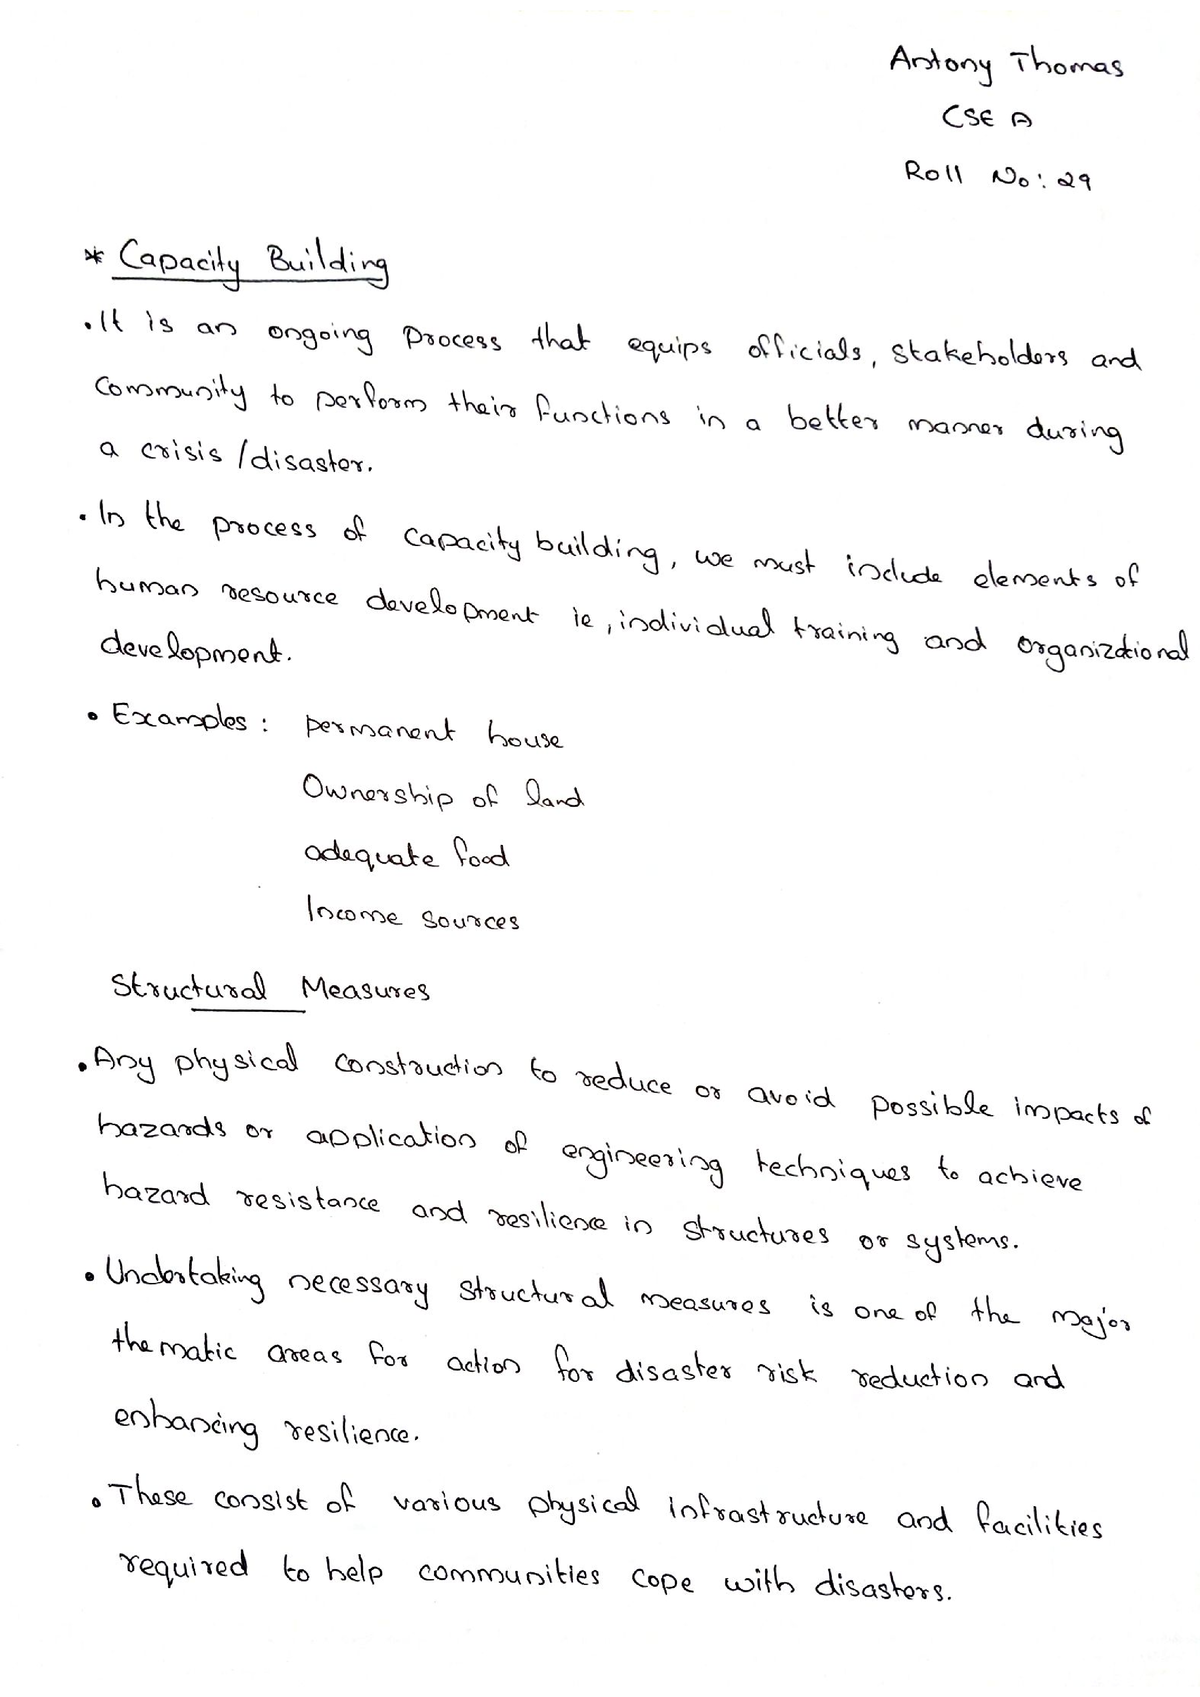 Antony Thomas
CSE A
Roll No: 29
* Capacity Building
• It is an ongoing process that equips officials, stakeholders and
community to perform their functions in a better manner during
a crisis / disaster.
• In the process of capacity building, we must include elements of
human resource development ie, individual training and organizational
development.
• Examples: permanent house
Ownership of land
adequate food
Income sources
Structural Measures
• Any physical construction to reduce or avoid possible impacts of
hazards or application of engineering techniques to achieve
hazard resistance and resilience in structures or systems.
• Undertaking necessary structural measures is one of the major
thematic areas for action for disaster risk reduction and
enhancing resilience.
• These consist of various physical infrastructure and facilities
required to help communities cope with disasters.